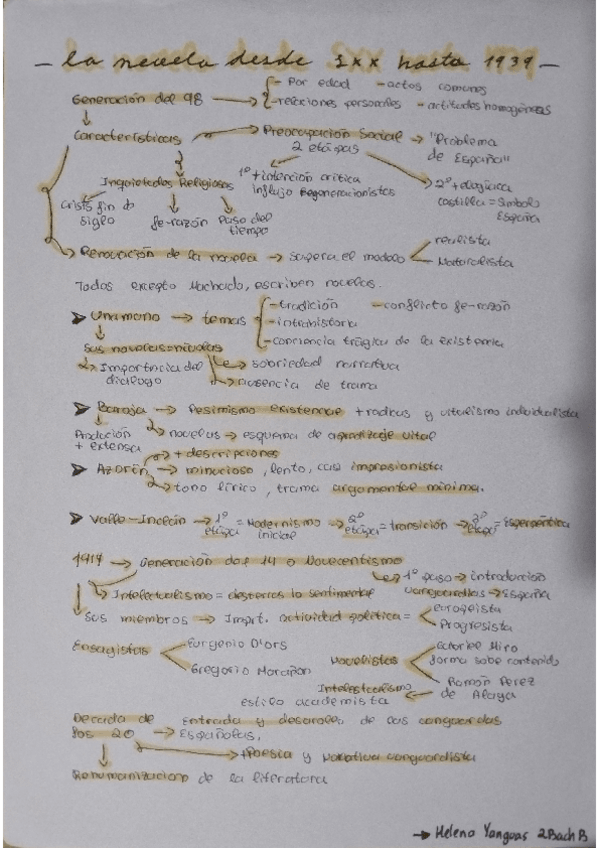 - la novela desde SXX hasta 1939 -
Generación del 98 → - Por edad - actos comunes
- relaciones personales - actitudes homogéneas
Características → Preocupación Social → "Problema
2 etapas de España"
Inquietudes Religiosas 1º + intención crítica
influjo Regeneracionistas
2º + elogiaca
castilla = Simbolo
España
Crisis fin d
siglo fe-razón Paso del
tiempo
Renovación de la novela → Supera el modelo realista
Naturalista
Todos excepto Machado, escriben novelas.
➤ Unamuno → temas - tradición - conflicto fe-razón
- intrahistoria
- conciencia trágica de la existencia
Sus novelas = nivolas
→ Importancia del → sobriedad narrativa
diálogo → ausencia de trama
➤ Baroja → Pesimismo existencial + radical y vitalismo individualista
Producción → novelas → esquema de aprendizaje vital
+ extensa → + descripciones
➤ Azorín → minucioso, lento, casi impresionista
→ tono lírico, trama argumental mínima.
➤ Valle-Inclán → 1º etapa = Modernismo inicial → 2º etapa = transición → 3º etapa = Esperpéntica
1914 → Generación del 14 o Novecentismo
→ 1º paso → introducción
vanguardias → España
→ Intelectualismo = destierra lo sentimental
Sus miembros → Imprt. actividad política = europeista
Progresista
Ensayistas Eurgenio D'ors
Gregorio Marañon
Novelistas Gabriel Miro
forma sobe contenido
Ramón Perez
de Ayala
Intelectualismo
estilo academista
Decada de Entrada y desarollo de las vanguardas
los 20 → Españolas.
→ + Poesia y Narrativa vanguardista
Rehumanizacion de la literatura
→ Helena Yanguas 2BachB